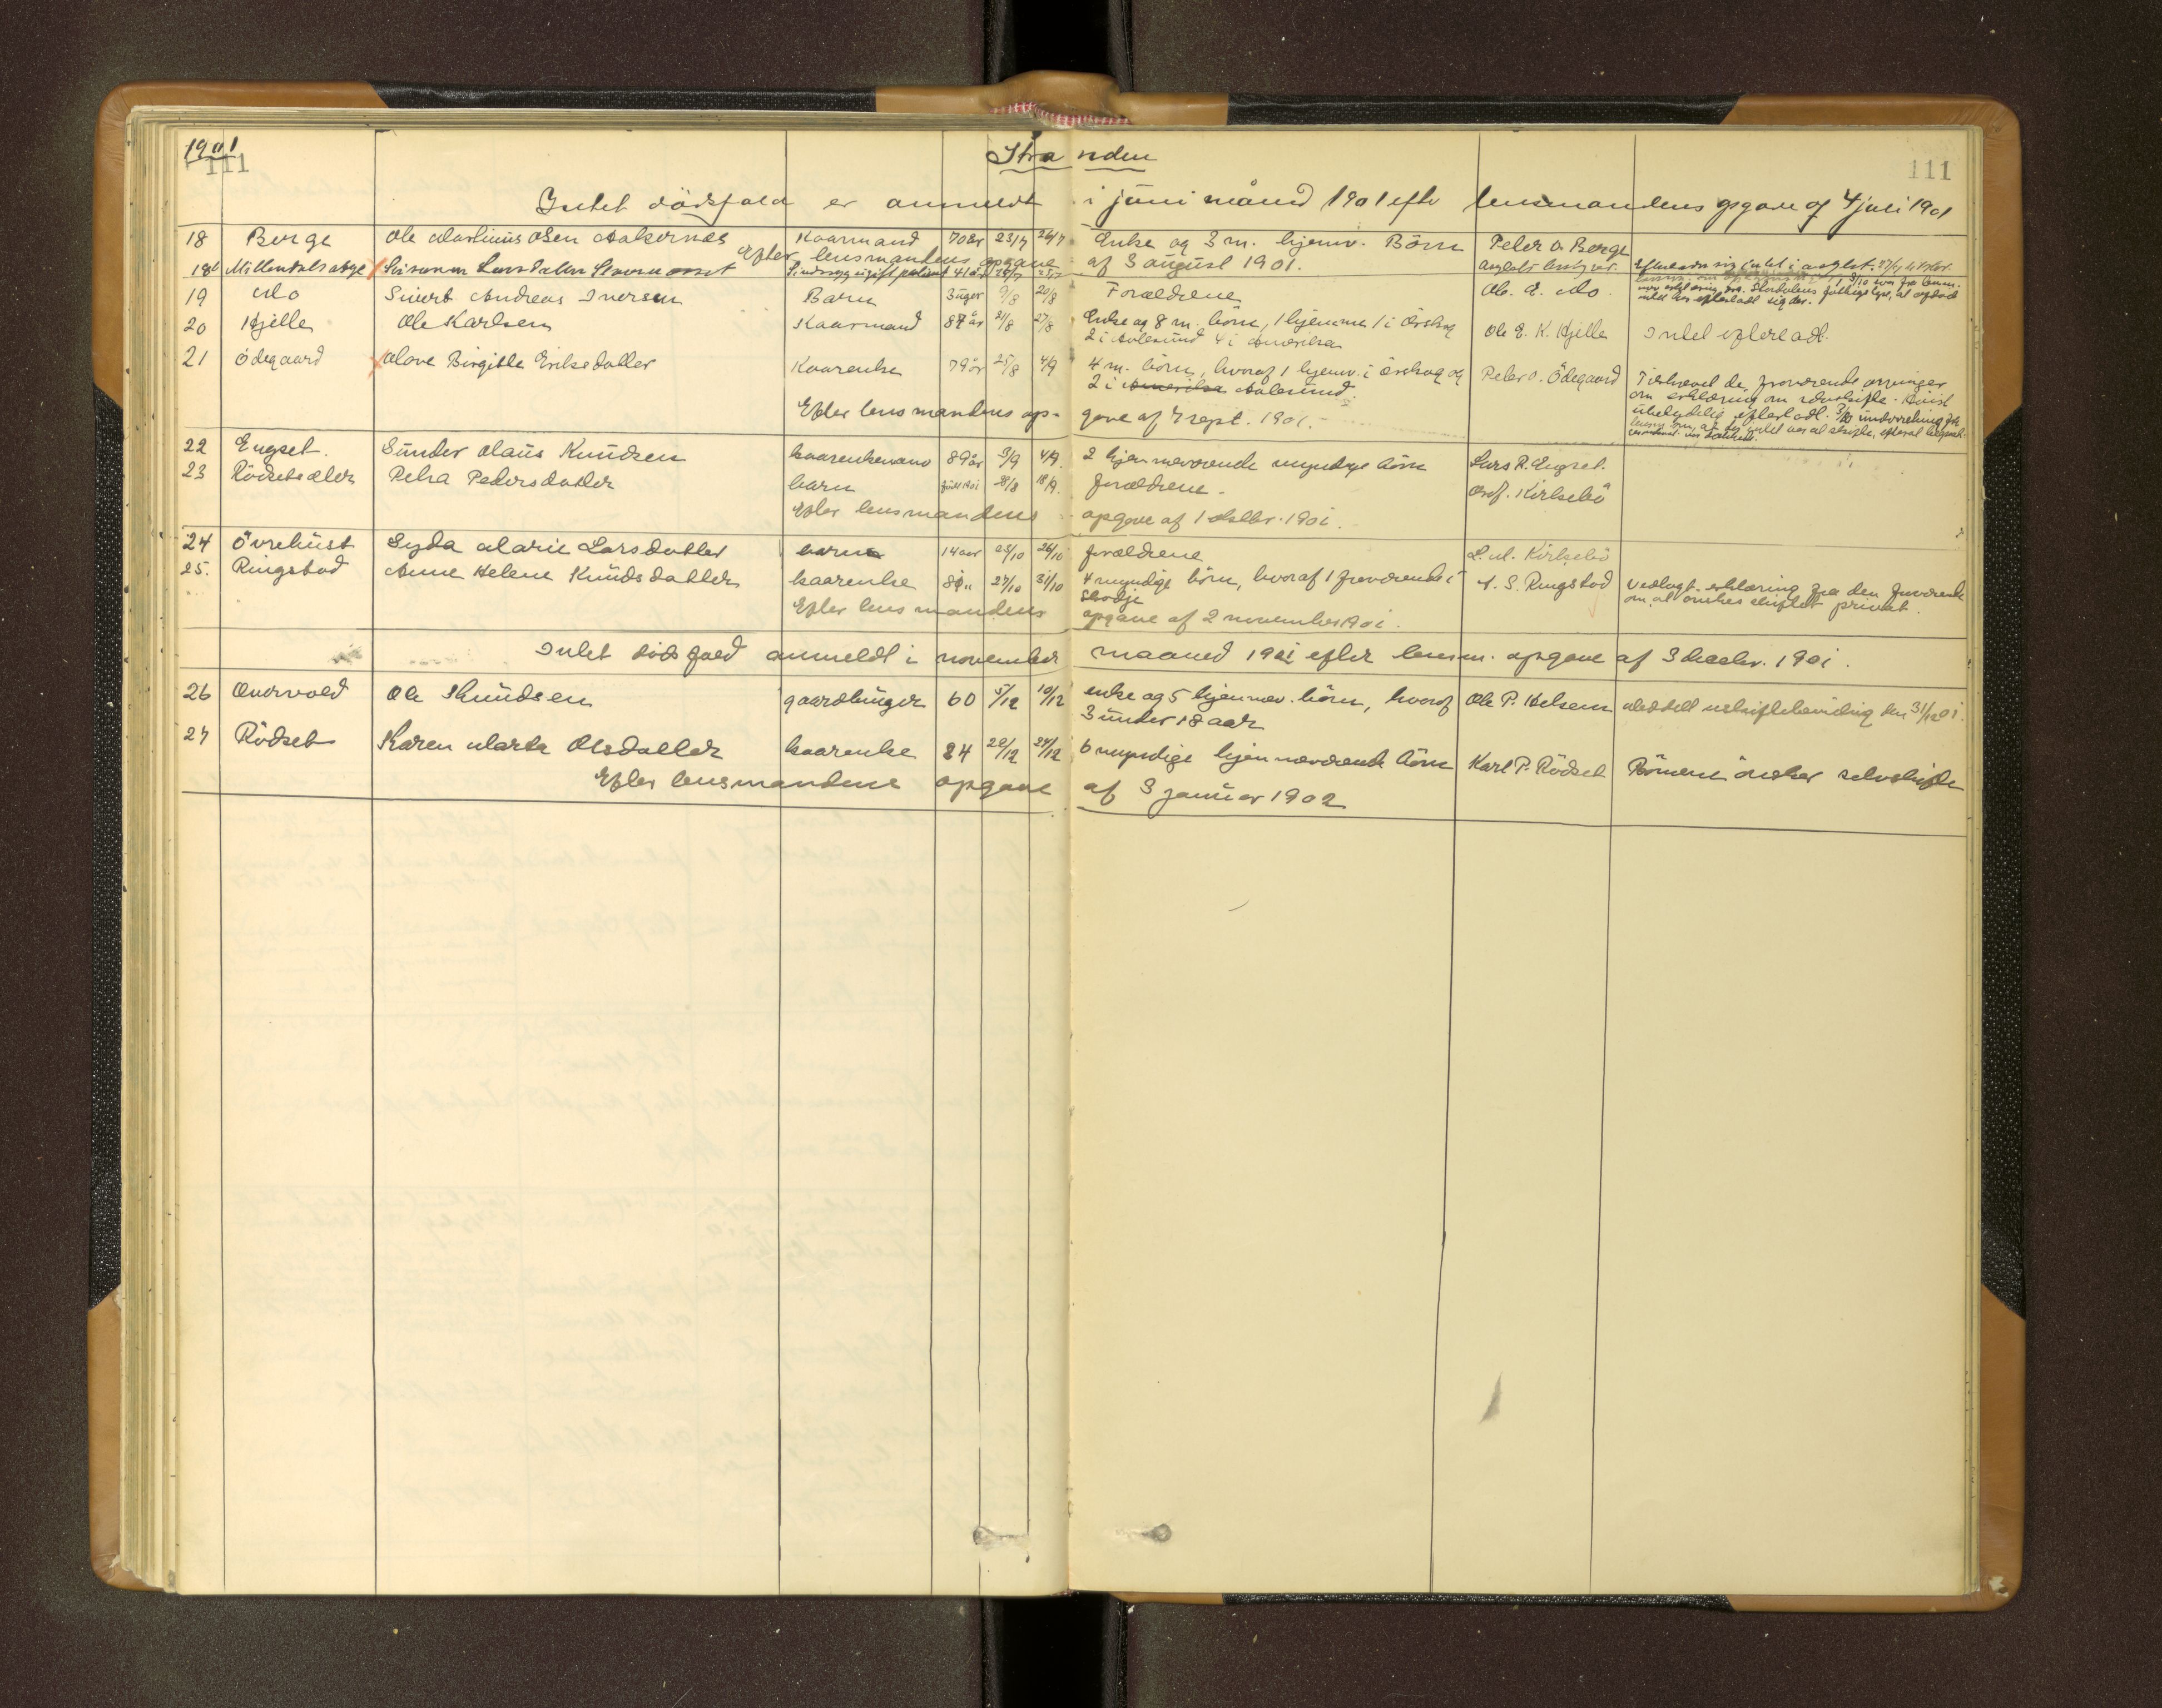 1901
111
Stranden
111
Intet dödsfald er anmeldt i juni måned 1901 efter lensmandens opgave af 4 juli 1901
18 Berge Ole Martinus Olsen Aakernes Kaarmand 70 år 23/7 26/7 Enke og 3 m. hjemv. Börn Peter O. Berge
Efter lensmandens opgave af 3 august 1901.
18b Susanna Larsdatter Sindssyg ugift 41 år 27/7 Efterlader sig intet i asylet.
19 Mo Sivert Andreas Iversen Barn 3 uger 9/8 20/8 Forældrene Ole E. Mo
20 Hjelle Ole Karlsen Kaarmand 87 år 21/8 27/8 Enke og 8 m. börn, 1 hjemme 1 i Örskog Ole E. K. Hjelle Intet efterladt.
2 i Aalesund 4 i Amerika
21 Ödegaard Mave Birgitte Eriksdatter Kaarenke 79 år 25/8 4/9 4 m. börn, hvoraf 1 hjemv. i Örskog og Peter O. Ödegaard Tilskrevet de fraværende arvinger
2 i Amerika Aalesund. om erklæring om selvskifte.
ubetydelig efterladt.
Efter lensmandens opgave af 7 sept. 1901.
22 Engset. Sunder Maus Knudsen kaarenkemand 89 år 3/9 4/9. 2 hjemmeværende myndige börn Lars R. Engset.
23 Rödsetsæter Petra Pedersdatter barn född 1901 28/8 18/9. forældrene. Kirkebö
Efter lensmandens opgave af 1 oktbr. 1901.
24 Övrehust Syda Marie Larsdatter barn 14 aar 23/10 26/10 forældrene L. M. Kirkebö
25. Ringstad Anne Helene Knudsdatter kaarenke 27/10 31/10 4 myndige börn, hvoraf 1 fraværende i A. S. Ringstad Vedlagt erklæring fra den fraværende
Skodje om at önskes skiftet privat.
Efter lensmandens opgave af 2 november 1901.
Intet dödsfald anmeldt i november maaned 1901 efter lensm. opgave af 3 decbr. 1901.
26 Overvold Ole Knudsen gaardbruger 60 5/12 10/12 enke og 5 hjemmev. börn, hvoraf Ole P. Helsem Meddelt uskiftebevilling den 31/12 01.
3 under 18 aar
27 Rödset Karen Marta Olsdatter kaarenke 84 20/12 24/12 6 myndige hjemmeværende börn Karl P. Rödset Börnene önsker selvskifte
Efter lensmandens opgave af 3 januar 1902